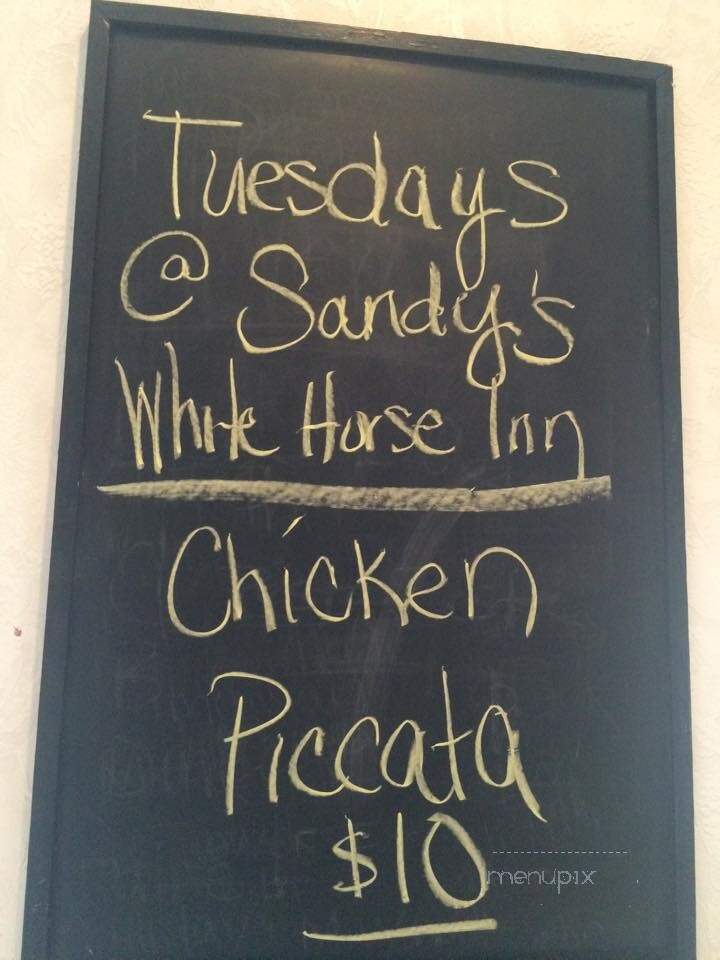 Tuesdays
@ Sandy's
White Horse Inn
Chicken
Piccata
$10
menupix